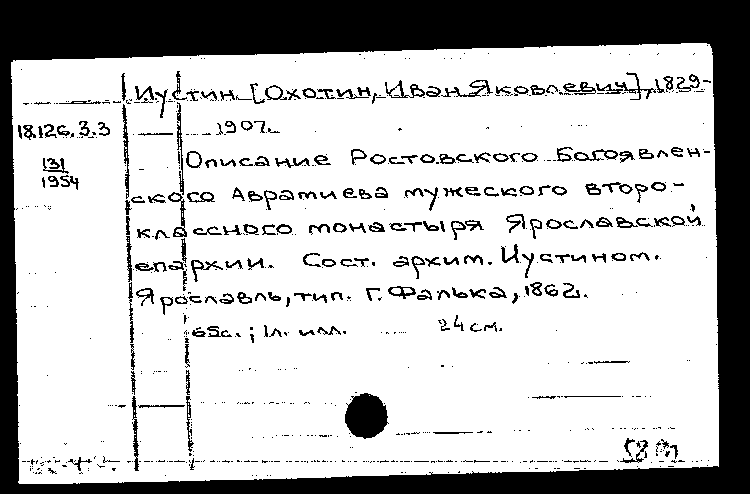 Иустин [Охотин, Иван Яковлевич], 1829-
18.126.3.3 1907.
131
1954
Описание Ростовского Богоявлен-
ского Авратиева мужеского второ-
классного монастыря Ярославской
епархии. Сост. архим. Иустином.
Ярославль, тип. Г. Фалька, 1862.
65с.; 1л. илл. 24 см.